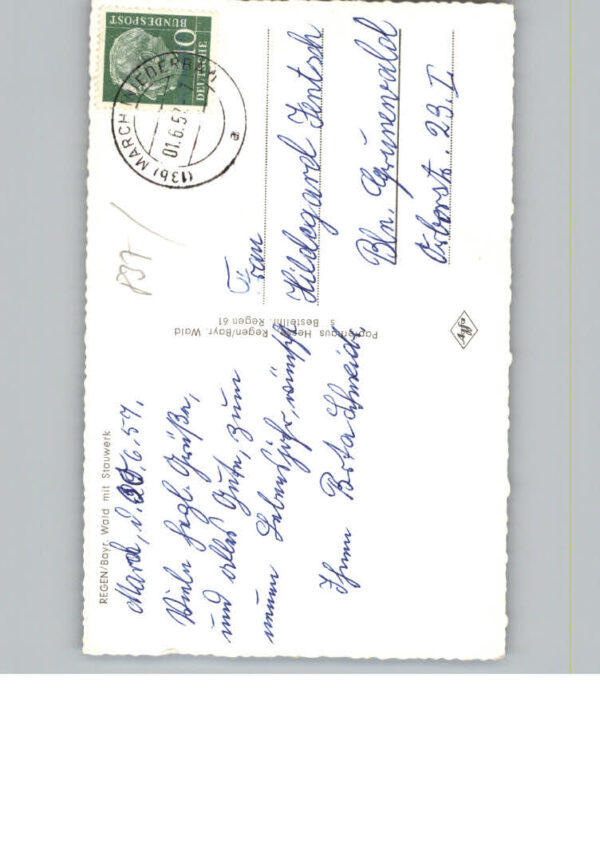 REGEN/Bayr. Wald mit Stauwerk
March, d. 20.6.57.
Viele herzl. Grüße,
und alles Gute, zum
neuen Lebensjahr, wünscht
Ihnen Berta Schneider
Papierhaus Regen/Bayr. Wald
s Bestellnr. Regen 61
DEUTSCHE
BUNDESPOST
10
(13b) MARCH
01.6.5
a
Frau
Hildegard Jentsch
Bln. Grunewald
23. I
Agfa
837